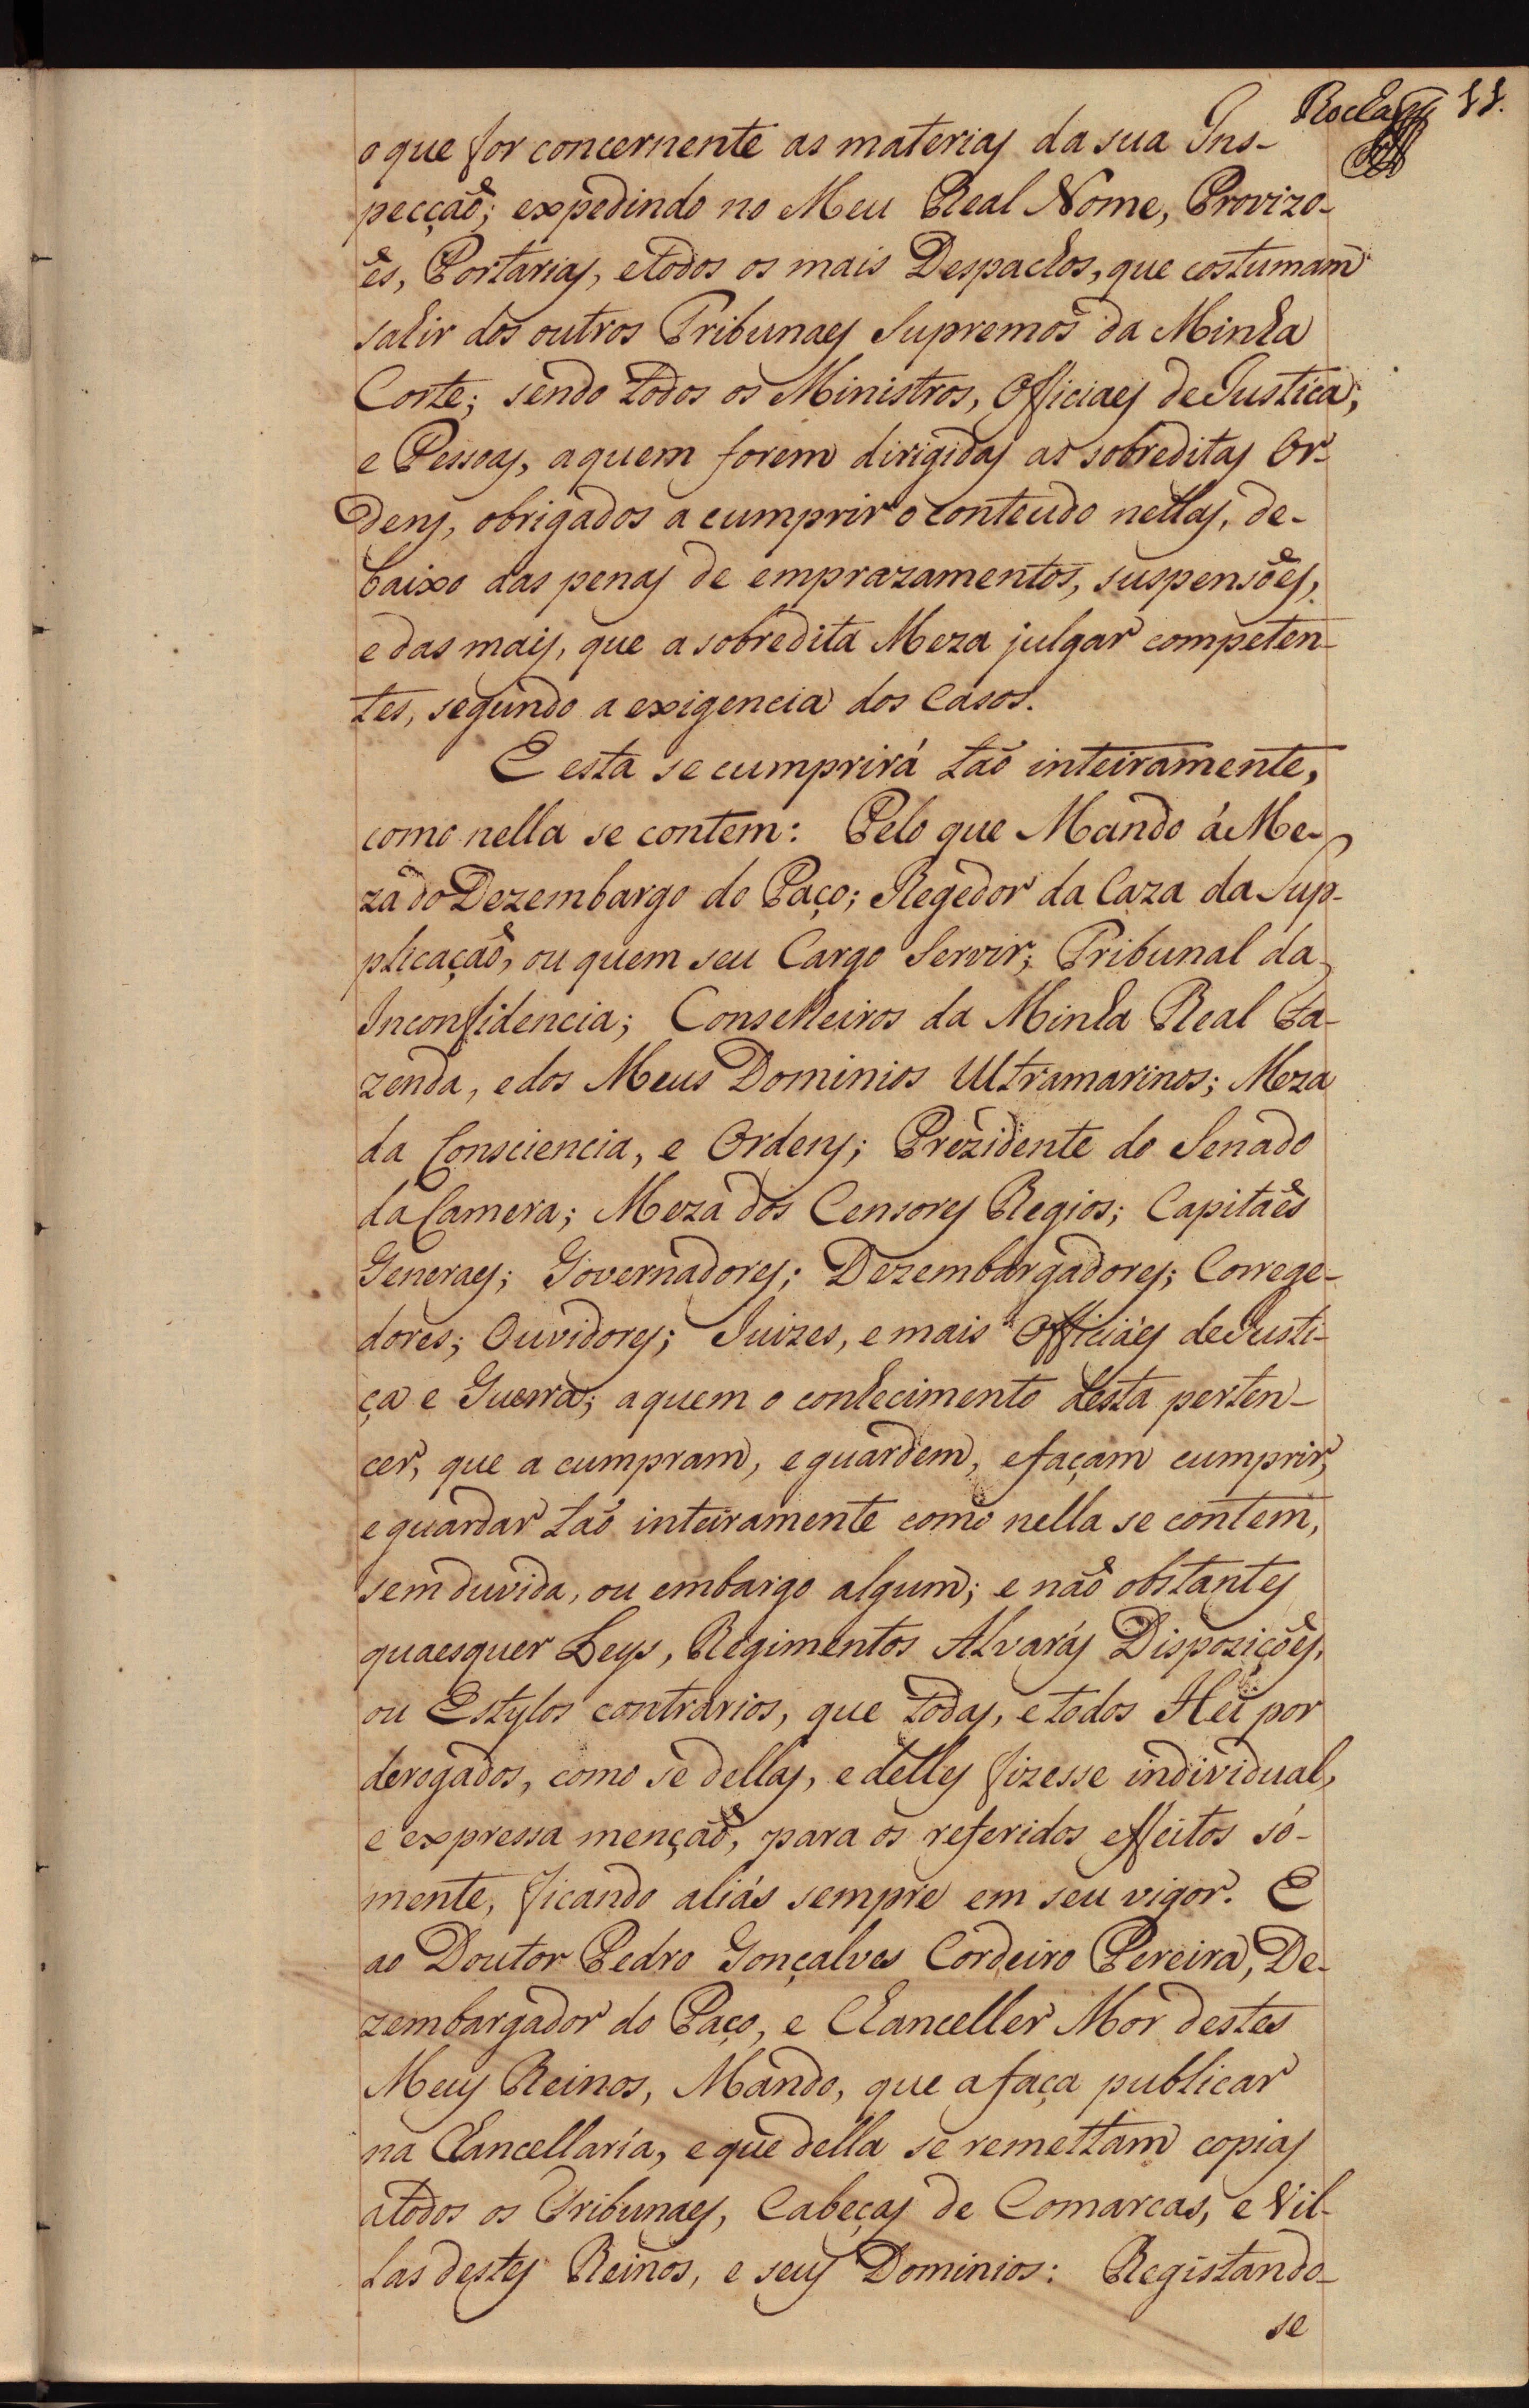 Rocha 11.
o que for concernente as materias da sua Ins-
pecção; expedindo no Meu Real Nome, Provizo-
ẽs, Portarias, etodos os mais Despachos, que costumam
sahir dos outros Tribunaes Supremos da Minha
Corte; sendo todos os Ministros, Officiaes deJustica,
e Pessoas, aquem forem dirigidas as sobreditas Or-
dens, obrigados a cumprir o conteudo nellas, de-
baixo das penas de emprazamentos, suspensões,
e das mais, que a sobredita Meza julgar competen-
tes, segundo a exigencia dos Casos.
E esta se cumprirá taõ inteiramente,
como nella se contem: Pelo que Mando á Me-
za do Dezembargo do Paço; Regedor da Caza da Sup-
plicação, ou quem seu Cargo Servir; Tribunal da
Inconfidencia; Conselheiros da Minha Real Fa-
zenda, edos Meus Dominios Ultramarinos; Meza
da Consciencia, e Ordens; Prezidente do Senado
da Camera; Meza dos Censores Regios; Capitães
Generaes; Governadores; Dezembargadores; Correge-
dores; Ouvidores; Juizes, e mais Officiáes deJusti-
ça e Guerra; aquem o conhecimento desta perten-
cer, que a cumpram, eguardem, efaçam cumprir,
e guardar taõ inteiramente como nella se contem,
sem duvida, ou embargo algum; e não obstantes
quaesquer Leys, Regimentos Alvarás Dispozições,
ou Estylos contrarios, que todas, etodos Hei por
derogados, como se dellas, e delles fizesse individual,
e expressa menção, para os referidos effeitos só-
mente, ficando aliás sempre em seu vigor. E
ao Doutor Pedro Gonçalves Cordeiro Pereira, De-
zembargador do Paço, e Chanceller Mor destes
Meus Reinos, Mando, que afaça publicar
na Chancellaría, eque della se remettam copias
atodos os Tribunaes, Cabeças de Comarcas, e Vil-
las destes Reinos, e seus Dominios: Registando-
se